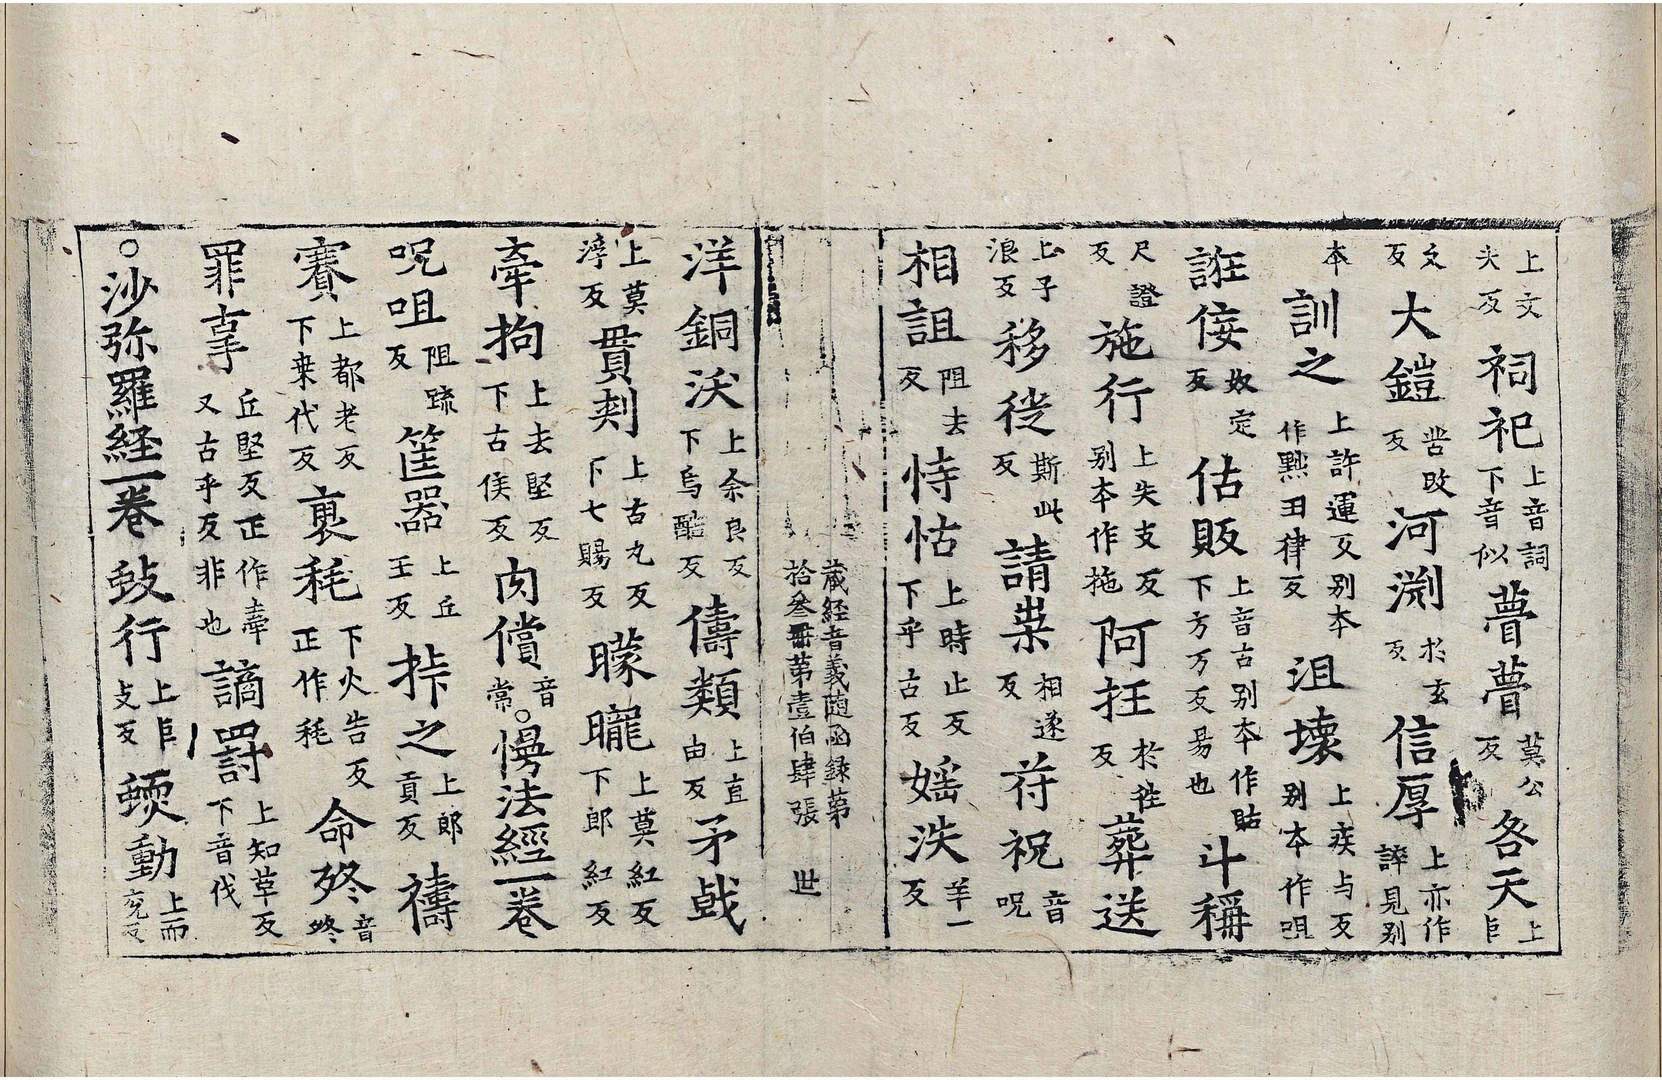 上文夫反祠祀上音詞下音似瞢瞢莫公反各夭上𦣞
反大鎧苦改反河渕於玄反信厚上亦作𧫘見别
本訓之上許運反别本作㸃田律反沮壊上疾与反别本作咀
誑佞奴定反估販上音古别本作貼下方万反昜也斗稱
尺證反施行上失支反别本作拖阿抂於往反葬送
上子浪反移徙斯此反請祟相遂反苻祝音呪
相詛阻去反恃怙上時止反下乎古反婬泆羊一反
藏経音義随函録第拾叁冊第壹伯肆張 世
洋銅沃上余良反下烏酷反儔類上直由反矛戟
上莫浮反貫刾上古丸反下七賜反朦朧上莫紅反下郎紅反
牽拘上去堅反下古侯反肉償音常○慢法經一卷
呪咀阻疏反筐器上丘王反挊之上郎貢反禱
賽上都老反下桒代反裏秏下火告反正作秏命終音終
罪𢪛丘堅反正作牽又古乎反非也謫罰上知革反下音伐
○沙弥羅経一卷 蚑行上𦣞支反蝡動上而兖反